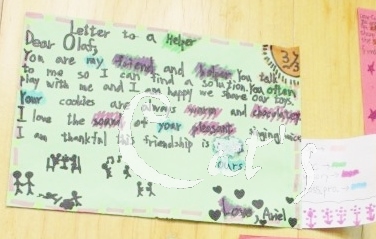 Letter to a Helper
Dear Olaf,
You are my friend and helper You talk
to me so I can find a solution. You often
play with me and I am happy we share our toys.
Your cookies are always and
I love the sound of your pleasant singing voice
I am thankful this friendship is
Love, Ariel